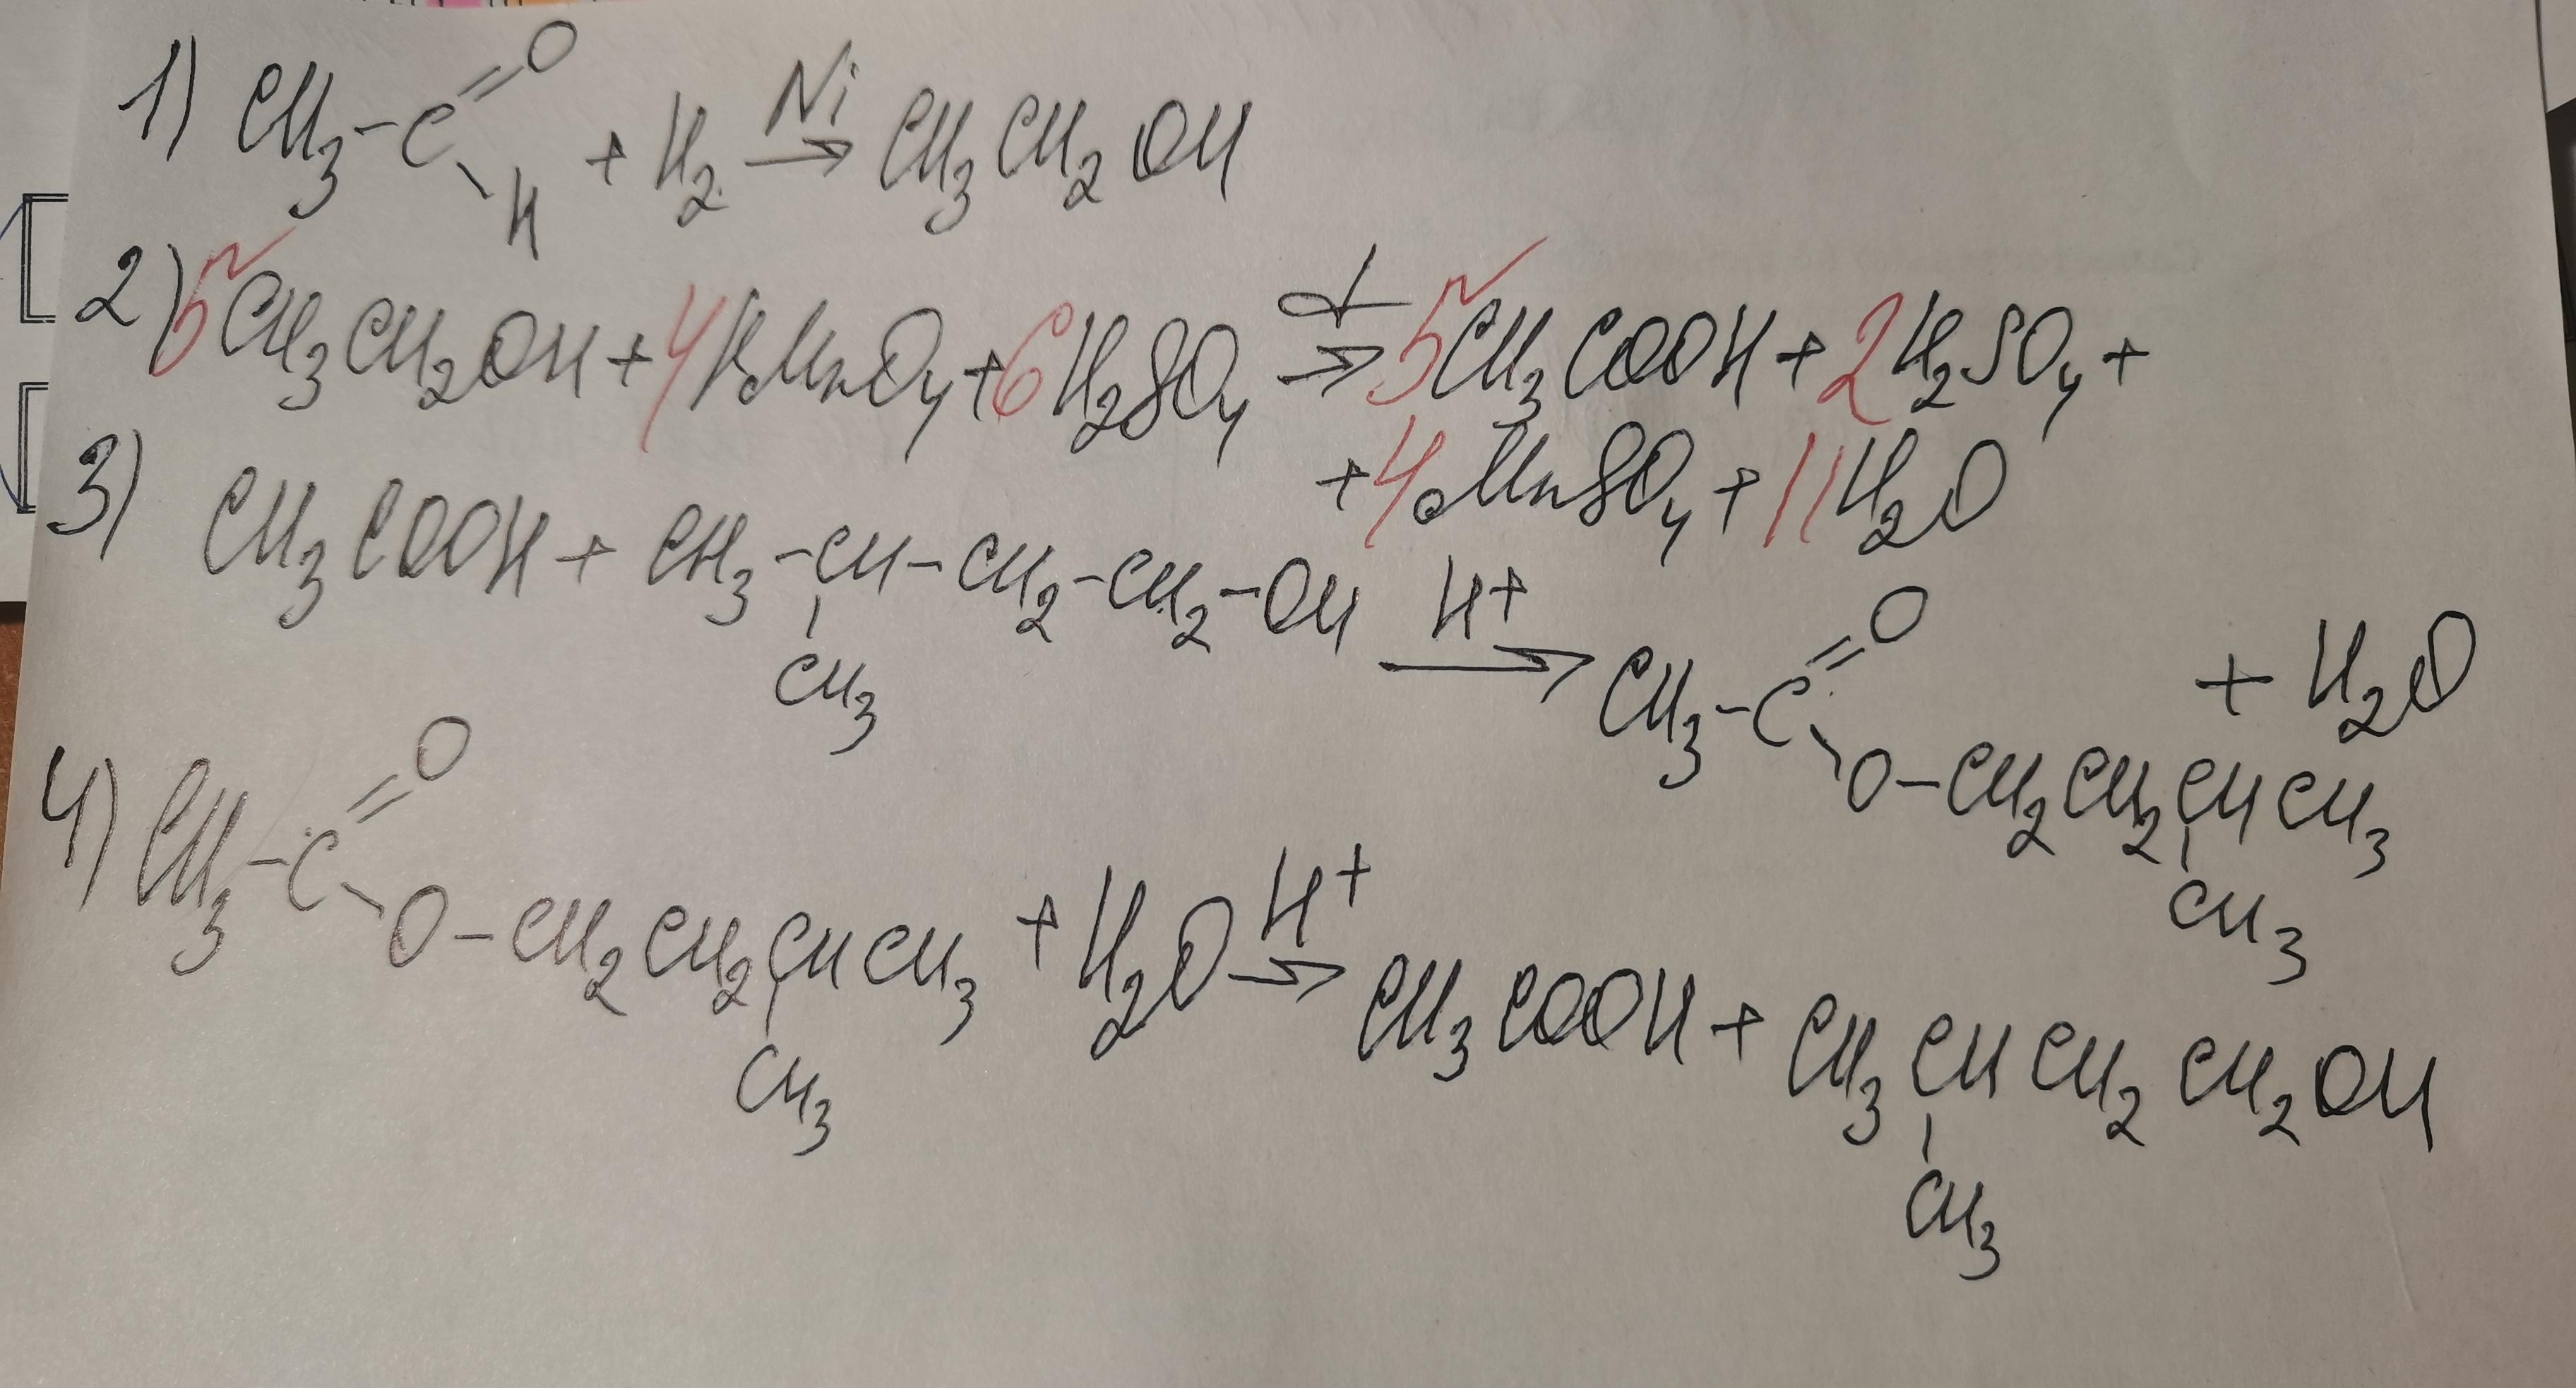 1) CH3-C=O
H + H2 Ni → CH3CH2OH
2) 5CH3CH2OH + 4KMnO4 + 6H2SO4 t → 5CH3COOH + 2H2SO4 +
+ 4MnSO4 + 11H2O
3) CH3COOH + CH3-CH-CH2-CH2-OH H+ →
CH3
CH3-C=O + H2O
O-CH2CH2CHCH3
CH3
4) CH3-C=O
O-CH2CH2CHCH3 + H2O H+ → CH3COOH + CH3CHCH2CH2OH
CH3
CH3